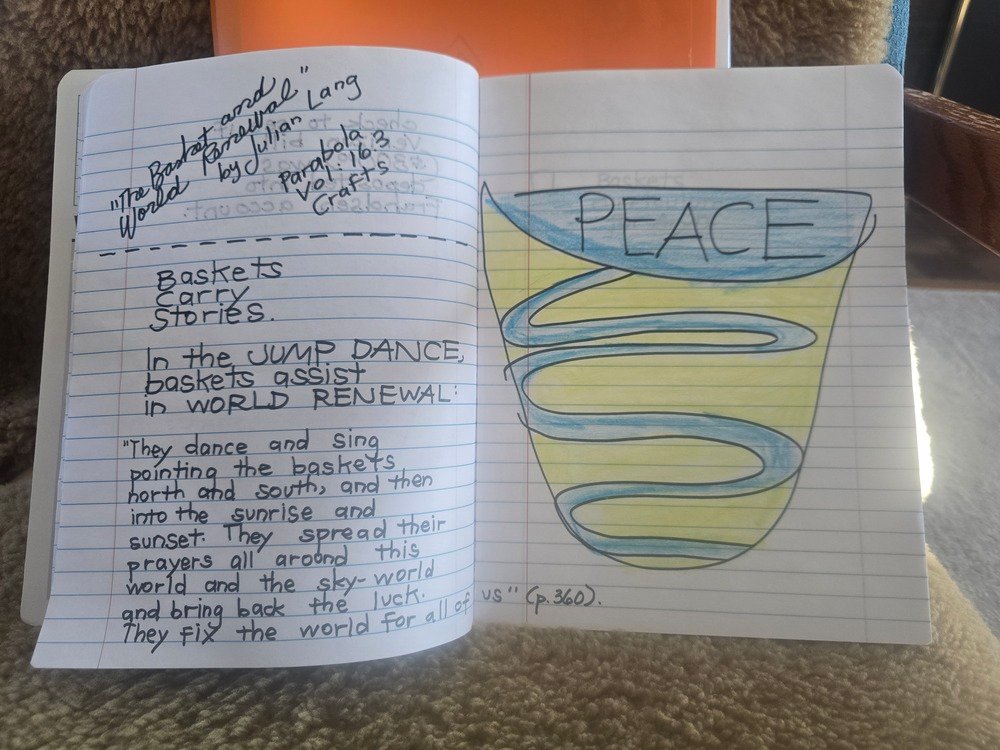 "The Basket and
World Renewal"
by Julian Lang
Parabola
Vol: 16 3
Crafts
Baskets
Carry
Stories.
In the JUMP DANCE,
baskets assist
in WORLD RENEWAL:
"They dance and sing
pointing the baskets
north and south, and then
into the sunrise and
sunset. They spread their
prayers all around this
world and the sky-world
and bring back the luck.
They fix the world for all of us" (p.360).
Baskets
PEACE